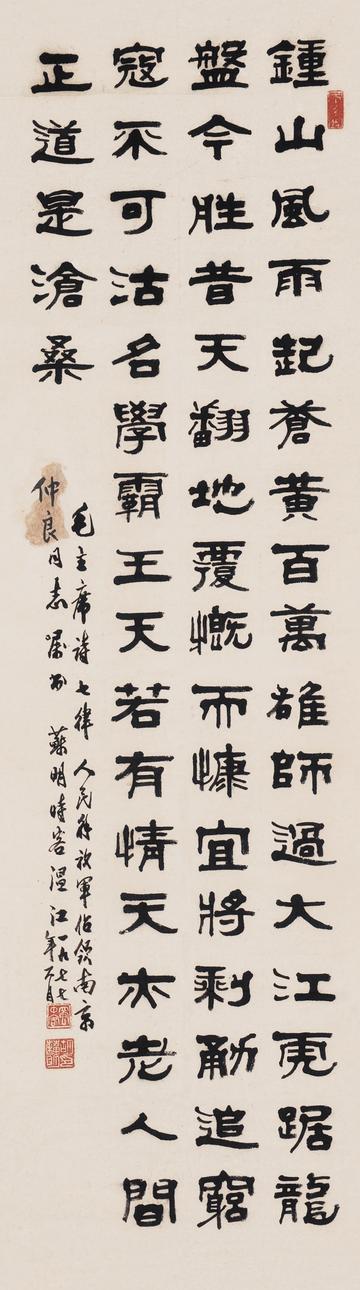 鍾山風雨起蒼黃百萬雄師過大江虎踞龍
盤今胜昔天翻地覆慨而慷宜將剩勇追窮
寇不可沽名學霸王天若有情天亦老人間
正道是滄桑
毛主席诗七律 人民解放軍佔领南京
仲良同志嘱书 蘇明時客温江 一九七七年月